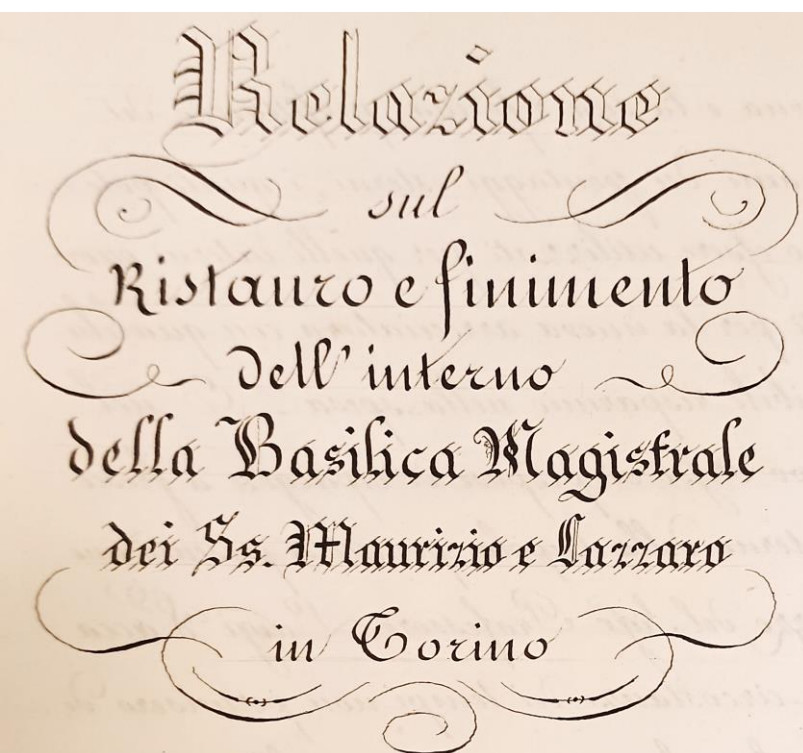 Relazione
sul
Ristauro e finimento
dell' interno
della Basilica Magistrale
dei Ss. Maurizio e Lazzaro
in Torino